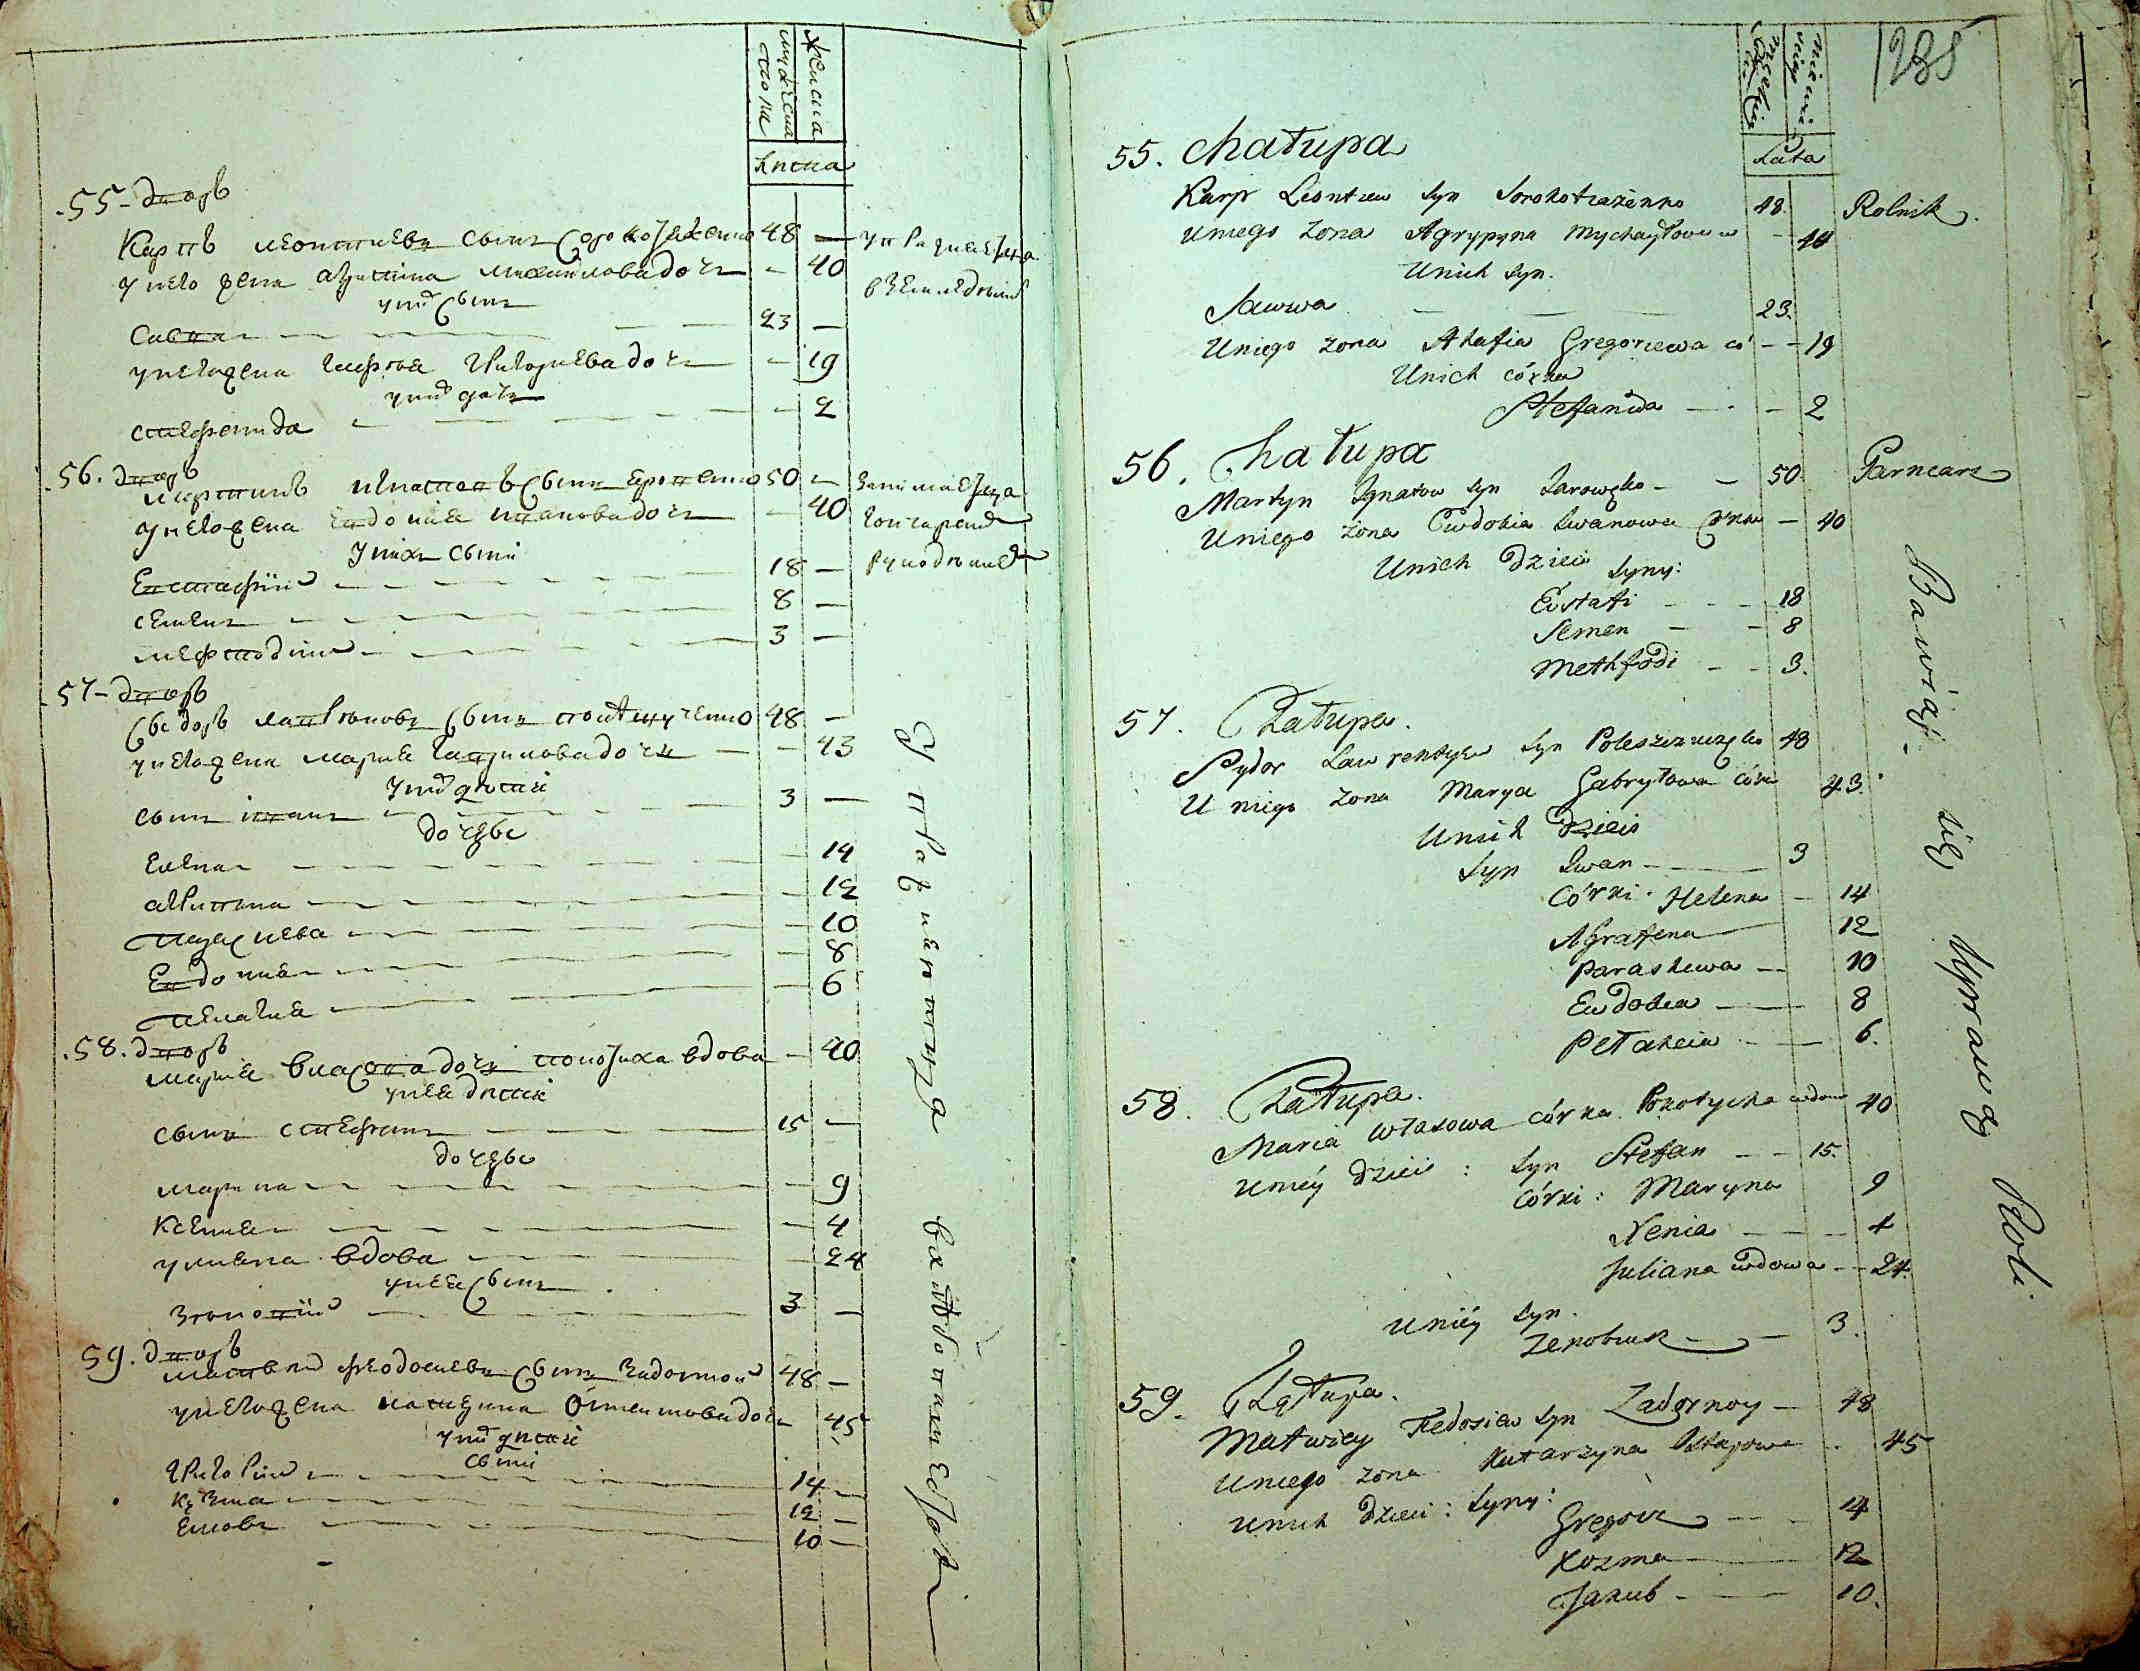 женска
мужеска
лѣта
55 - дворъ
Карпъ леонтиевъ сынъ Сорокотяженко 48 —
у него жена агрипина михайловадочь - 40
у них Сынъ
Савва — 23 —
у негожена агафия григориевадочь - 19
у них дочь
стефанида - 2
упражняется
в земледѣлии
56. дворъ
мартинъ игнатовъ Сынъ Яровенко 50 —
у негожена Евдокия ивановадочь - 40
у нихъ сыни
Евстафий 18 —
семенъ 8 —
мефтодий 3 —
занимается
гончарним
рукодѣлием
57 - дворъ
Сыдоръ лаврѣновъ Сынъ 48 —
у негожена мария гавриловадочь - 43
у них дѣти
сынъ иванъ 3 —
дочери
Елена - 14
агрипина - 12
параскева - 10
Евдокия - 8
пелагия - 6
58. дворъ
мария власовадочь покотиха вдова - 40
у нея дѣти
сынъ стефанъ 15 —
дочери
марина - 9
Ксения - 4
улияна вдова - 24
у нея Сынъ
Зѣновий 3 —
59. дворъ
матвѣй феодосиевъ Сынъ Задорной 48 —
у негожена катерина 45
у них дѣти
сыни
григорий 14 —
кузма 12 —
яковъ 10 —
упражняются
в хлѣбопашестве
1285
męzkiey
Lata
55. Chałupa
Karp Leontiew Syn Sorokotiażenko 48. Rolnik.
Uniego Zona Agrypyna Mychayłowa - 40
Unich Syn.
Sawwa 23.
Uniego Zona Ahafia Gregoriewa có - - 19
Unich córka
Stefanida - - 2
56. Chałupa
Martyn Ignatow Syn Jarowęko - - 50. Garncarz
Uniego żona Eudokia Iwanowa Córka - 40
Unich Dzieci Syny:
Eustafi - - 18
Semen - - 8
Methfodi - - 3.
57. Chałupa.
Sydor Lawrentyew Syn 48
U niego Zona Marya Gabryłowa Córka 43.
Unich Dzieci
Syn Iwan - 3
Córki: Helena - 14
Agrafena 12
Paraskewa - 10
Eudokia - 8
Pełahia - 6.
58. Chałupa.
Maria Własowa Córka Pokotycha wdowa 40
Uniéy Dzieci: Syn Stefan - - 15.
Córki: Maryna 9
Xenia - - 4
Juliana wdowa - - 24.
Uniéy Syn.
Zenobiusz - 3.
59. Chałupa.
Matwiey Fiedosiew Syn Zadornoy - 48
Uniego Zona Katarzyna Ostapowa - 45
Unich Dzieci: Syny:
Gregorz - - 14
Kozma - 12
Jakub - 10.
Bawiąj- się Uprawą Roli